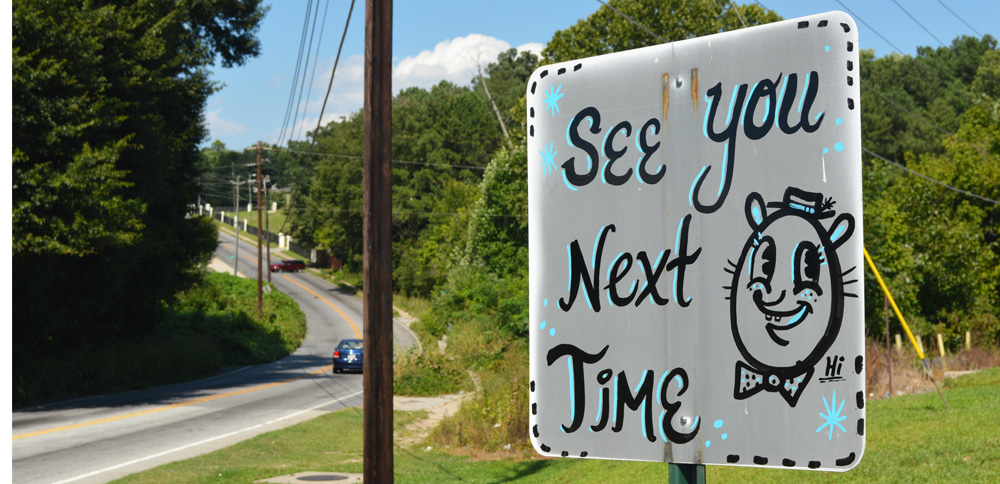 See you
Next
Time
Hi